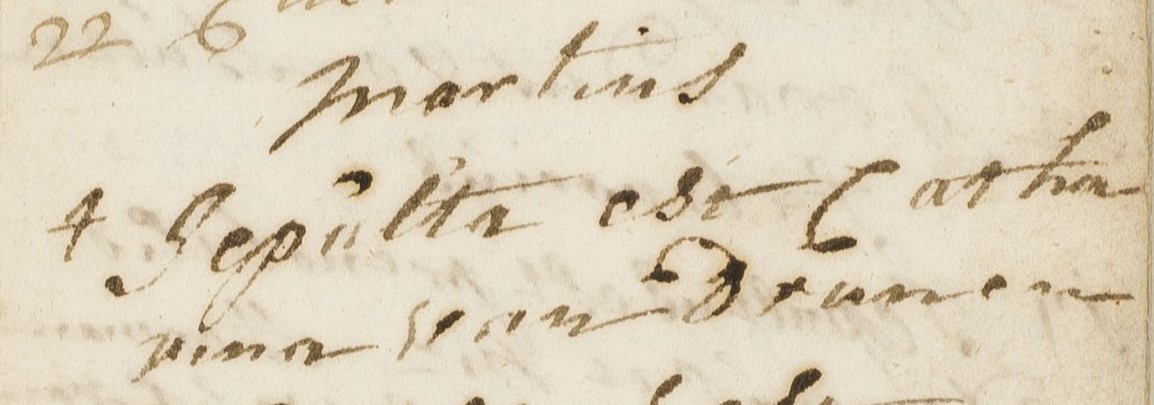 22 6
martius
4 Sepulta est Catha
rina van Drunen